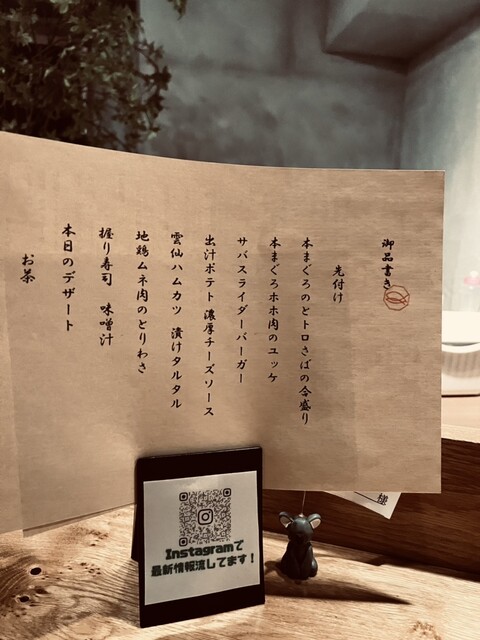 御品書き
先付け
本まぐろのどトロさばの合盛り
本まぐろホホ肉のユッケ
サバスライダーバーガー
出汁ポテト 濃厚チーズソース
雲仙ハムカツ 漬けタルタル
地鶏ムネ肉のとりわさ
握り寿司 味噌汁
本日のデザート
お茶
Instagramで
最新情報流してます!
様